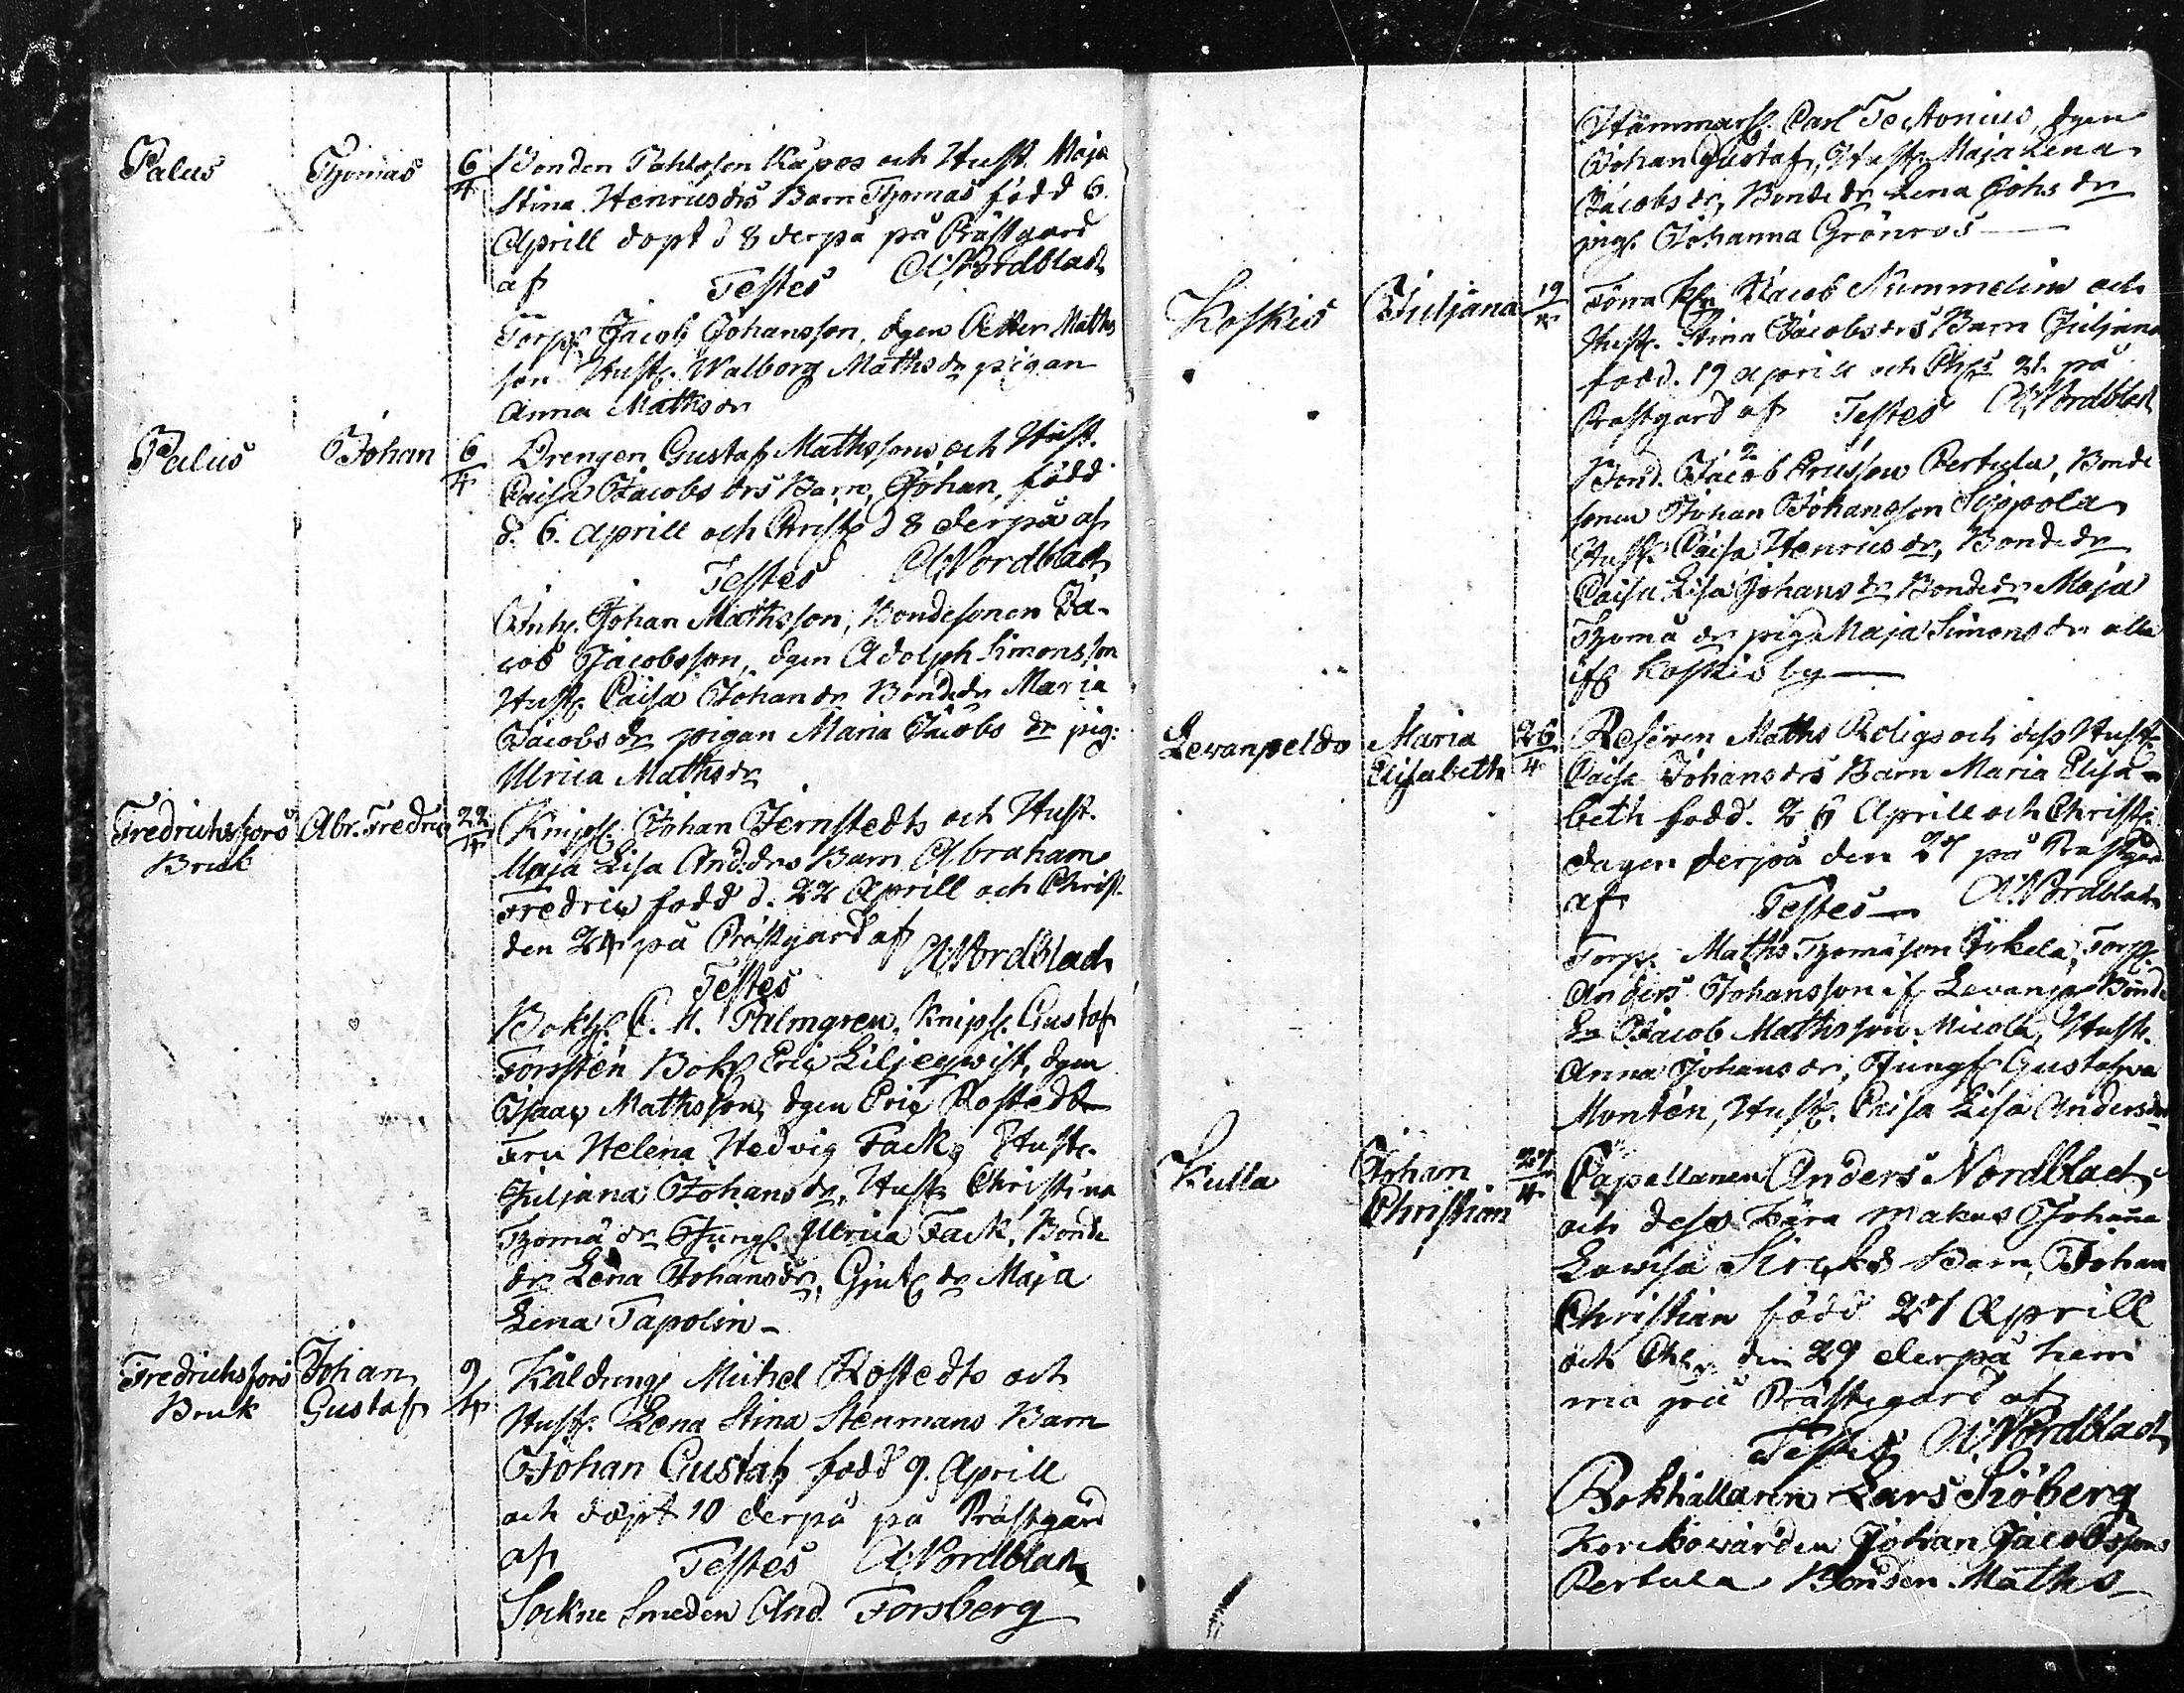 Palus Thomas 6/4 Bonden Pahlsson Kapos och Hust. Maja
Stina Henricsdrs Barn Thomas född 6.
Aprill döpt d 8 derpå på Prästgård
af Testes A: Nordblad
Torp. Jacob Johansson, dgen Petter Maths
son Hust. Walborg Mathsdr pigan
Anna Mathsdr
Palus Johan 6/4 Drengen Gustaf Mathssons och Hust.
Caisa Jacobsdrs Barn, Johan, född
d. 6. Aprill och Christ d 8 derpå af
Testes A: Nordblad
Inh. Johan Mathsson, Bondesonen Ja-
cob Jacobsson, dgen Adolph Simonsson
Hust. Caisa Johansdr Bondedr Maria
Jacobsdr pigan Maria Jacobsdr pig:
Ulrica Mathsdr
Fredrichsfors Abr. Fredric 22/4 Knips. Johan Jernstedts och Hust.
Bruk Maja Lisa And:drs Barn Abraham
Fredric född d. 22 Aprill och Christ.
den 24 på Prästgård af A: Nordblad
Testes
Bokh. C. H. Palmgren, Knips. Gustaf
Forssten Bokh Eric Liljeqwist, dgen
Isaac Mathsson, dgen Eric Rostedt
Fru Helena Hedvig Fack, Hust.
Juljana Johansdr, Hust. Christina
Thomædr Jungf. Ulrica Fack, Bonde
dr Lena Johansdr, Gjut. dr Maja
Lena Tapolin
Fredrichsfors Johan 9/4 Kåldreng Michel Rostedts och
Bruk Gustaf Hust. Lena Stina Stenmans Barn
Johan Gustaf född 9. Aprill
och döpt 10 derpå på Prästgård
af Testes A: Nordblad
Sockne Smeden And. Forsberg
Hammars. Carl Tectonius, dgen
Johan Gustaf, Hust. Maja Lena
Jacobsdr, Bondedr Lena Johsdr
pig. Johanna Grönros
Koskis Juljana 19/4 Jacob Nummelins och
Hust. Stina Jacobsdrs Barn Juljana
född. 19 Aprill och Chs 21 på
Prästgård af Testes A: Nordblad
Bond. Jacob Ericsson Pertula, Bonde
sonen Johan Johansson Sippola
Hust. Caisa Henricsdr, Bondedr
Caisa Lisa Johansdr Bondedr Maja
Thomædr piga Maja Simonsdr alla
if Koskis by
Levanpeldo Maria 26/4 Maths Roligs och dess Hust.
Elisabeth Caisa Johansdrs Barn Maria Elisa-
beth född. 26 Aprill och Christ.
dagen derpå den 27 på Prästgård
af Testes A: Nordblad
Torp. Maths Thomæson Torp.
Anders Johansson if Levanp. Bonde
Jacob Mathsson Micola, Hust.
Anna Johansdr, Jungf Gustafva
Montén, Hust. Caisa Lisa Andersdr
Kulla Johan 27/4 Capellanen Anders Nordblad
Christian och dess kära makas Johanna
Lovisa Barn, Johan
Christian född 27 Aprill
och Chr. den 29 derpå hem
ma på Prästegård af
Testes A: Nordblad
Bokhållaren Lars Siöberg
Kyrckowärden Johan Jacobsson
Pertula Bonden Maths